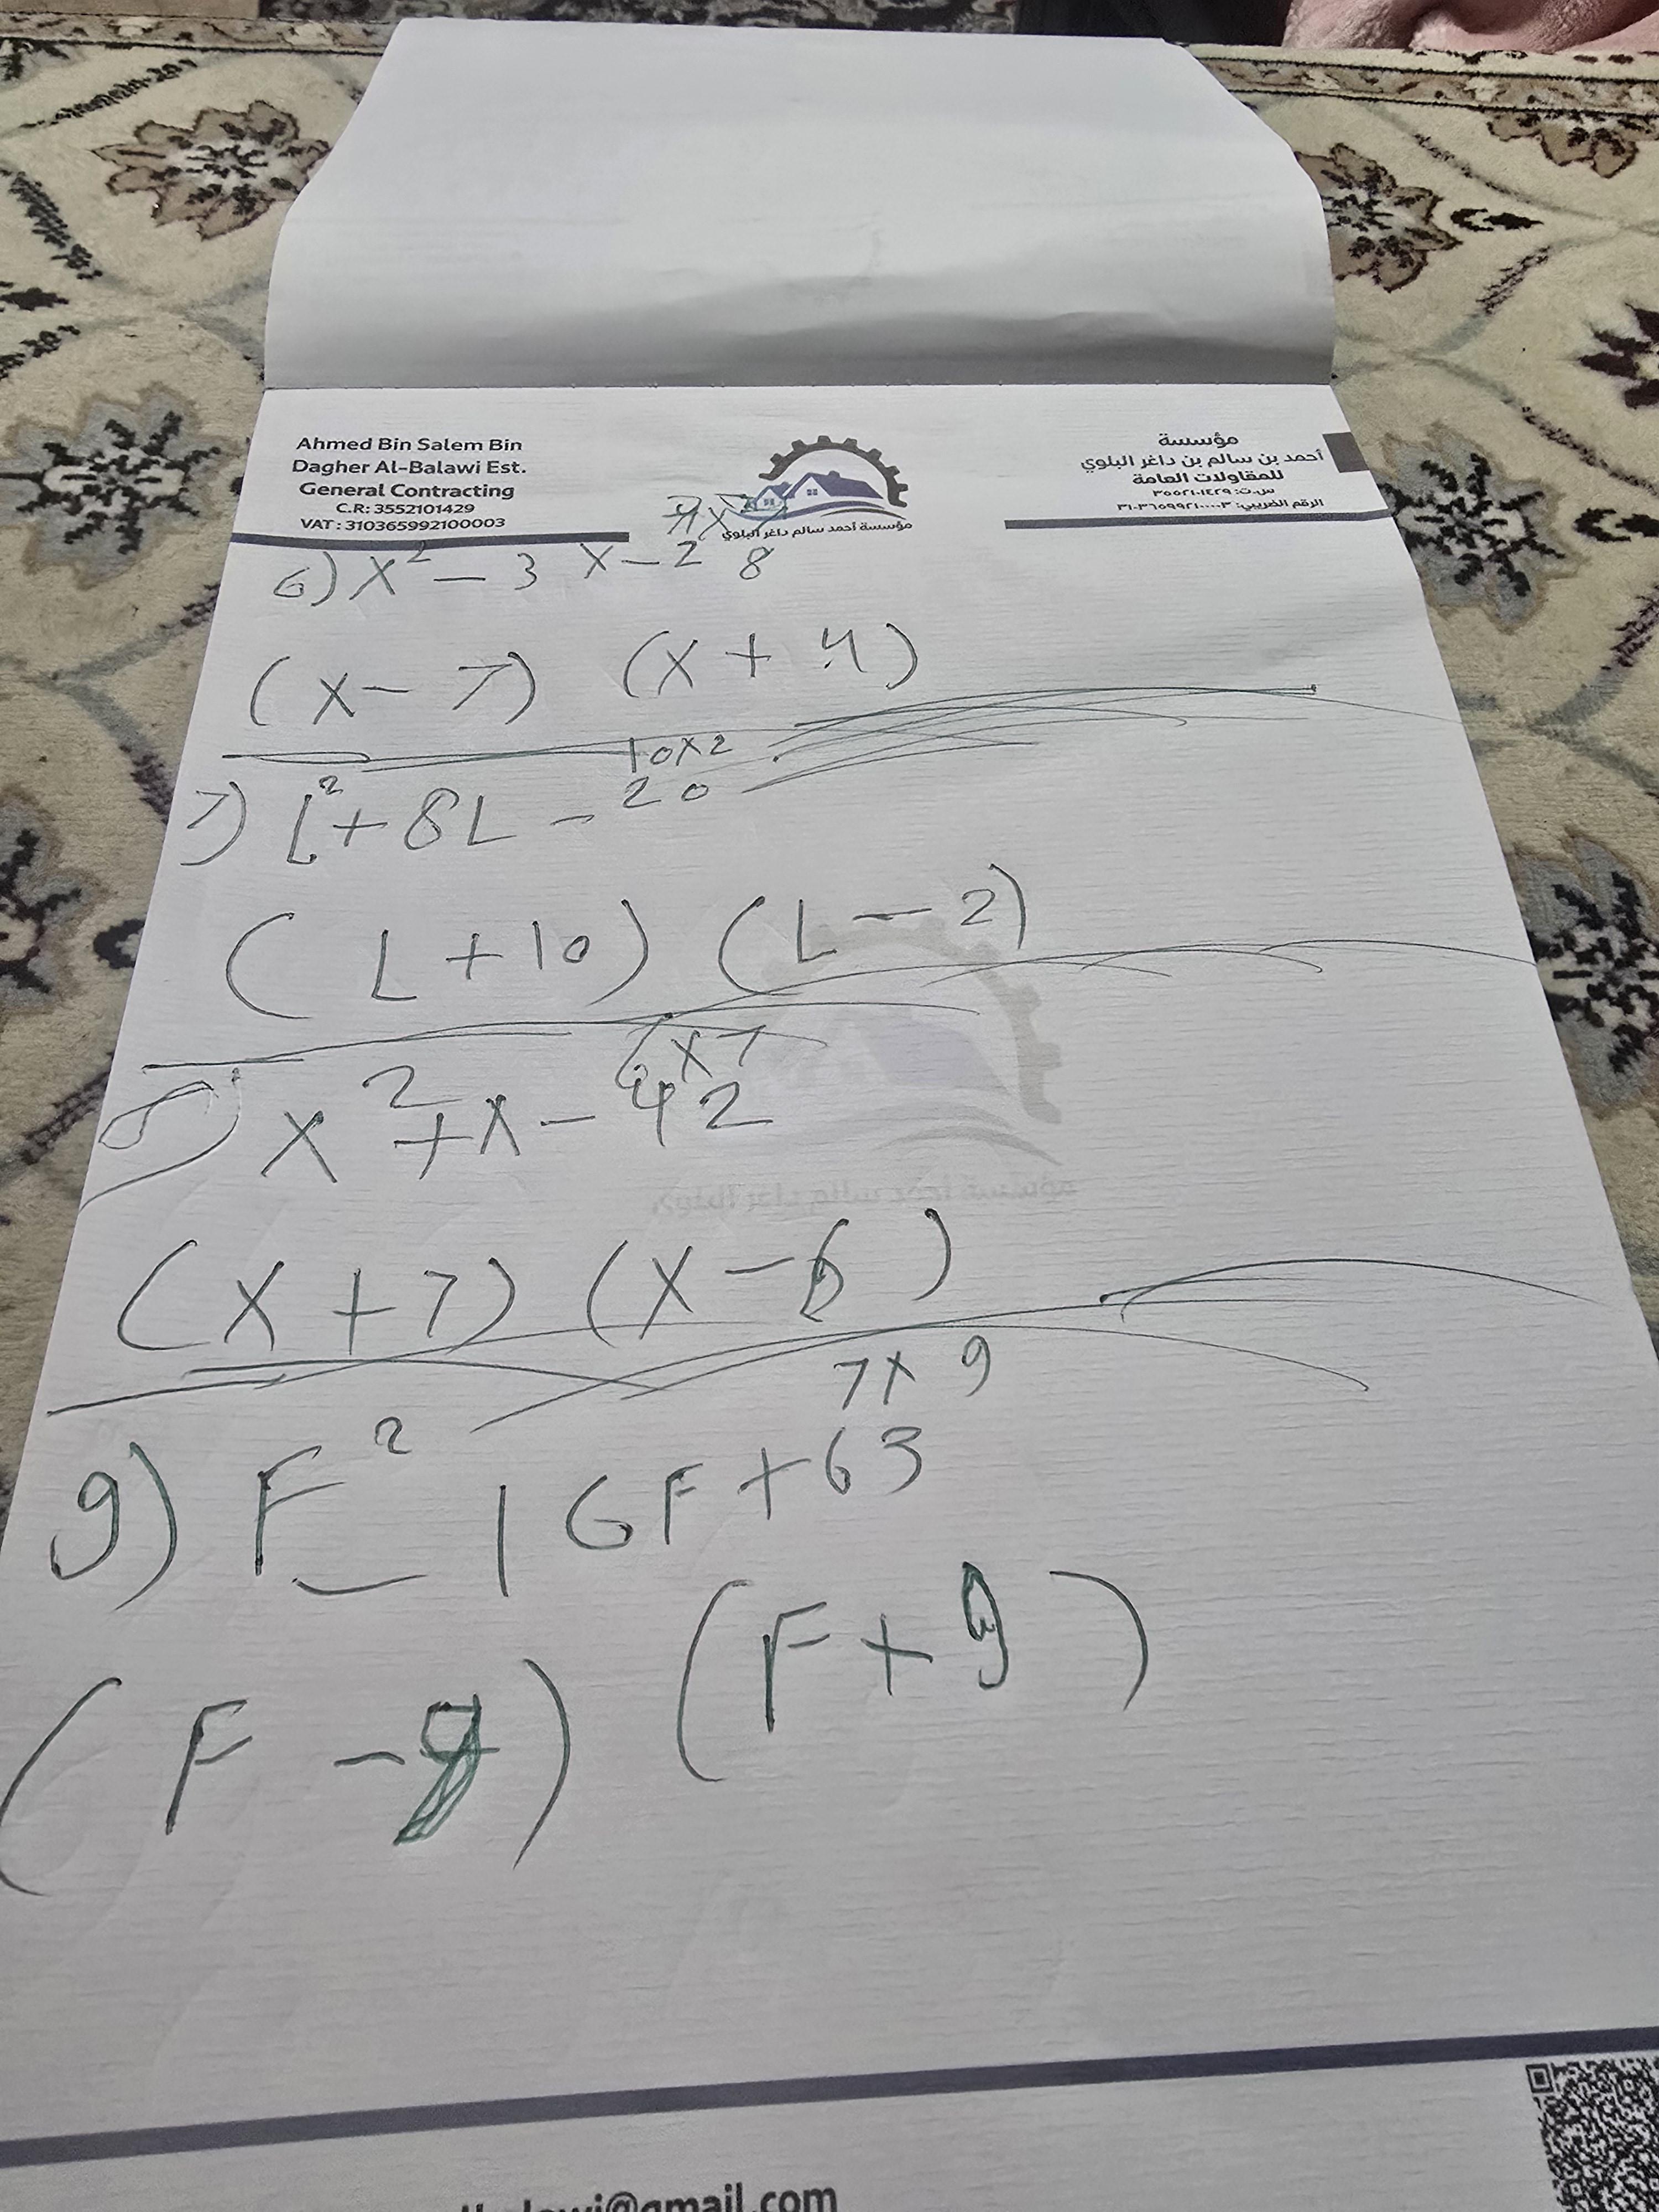 Ahmed Bin Salem Bin
Dagher Al-Balawi Est.
General Contracting
C.R: 3552101429
VAT : 310365992100003
مؤسسة أحمد سالم داغر البلوي
مؤسسة
أحمد بن سالم بن داغر البلوي
للمقاولات العامة
س.ت: ٣٥٥٢١٠١٤٢٩
الرقم الضريبي: ٣١٠٣٦٥٩٩٢١٠٠٠٠٣
6) X² - 3 X - 28
(X - 7) (X + 4)
10X2
7) L² + 8L - 20
(L + 10) (L - 2)
6X7
8) X² + X - 42
(X + 7) (X - 6)
7X 9
9) F² - 16F + 63
(F - ) (F + 9)
@gmail.com